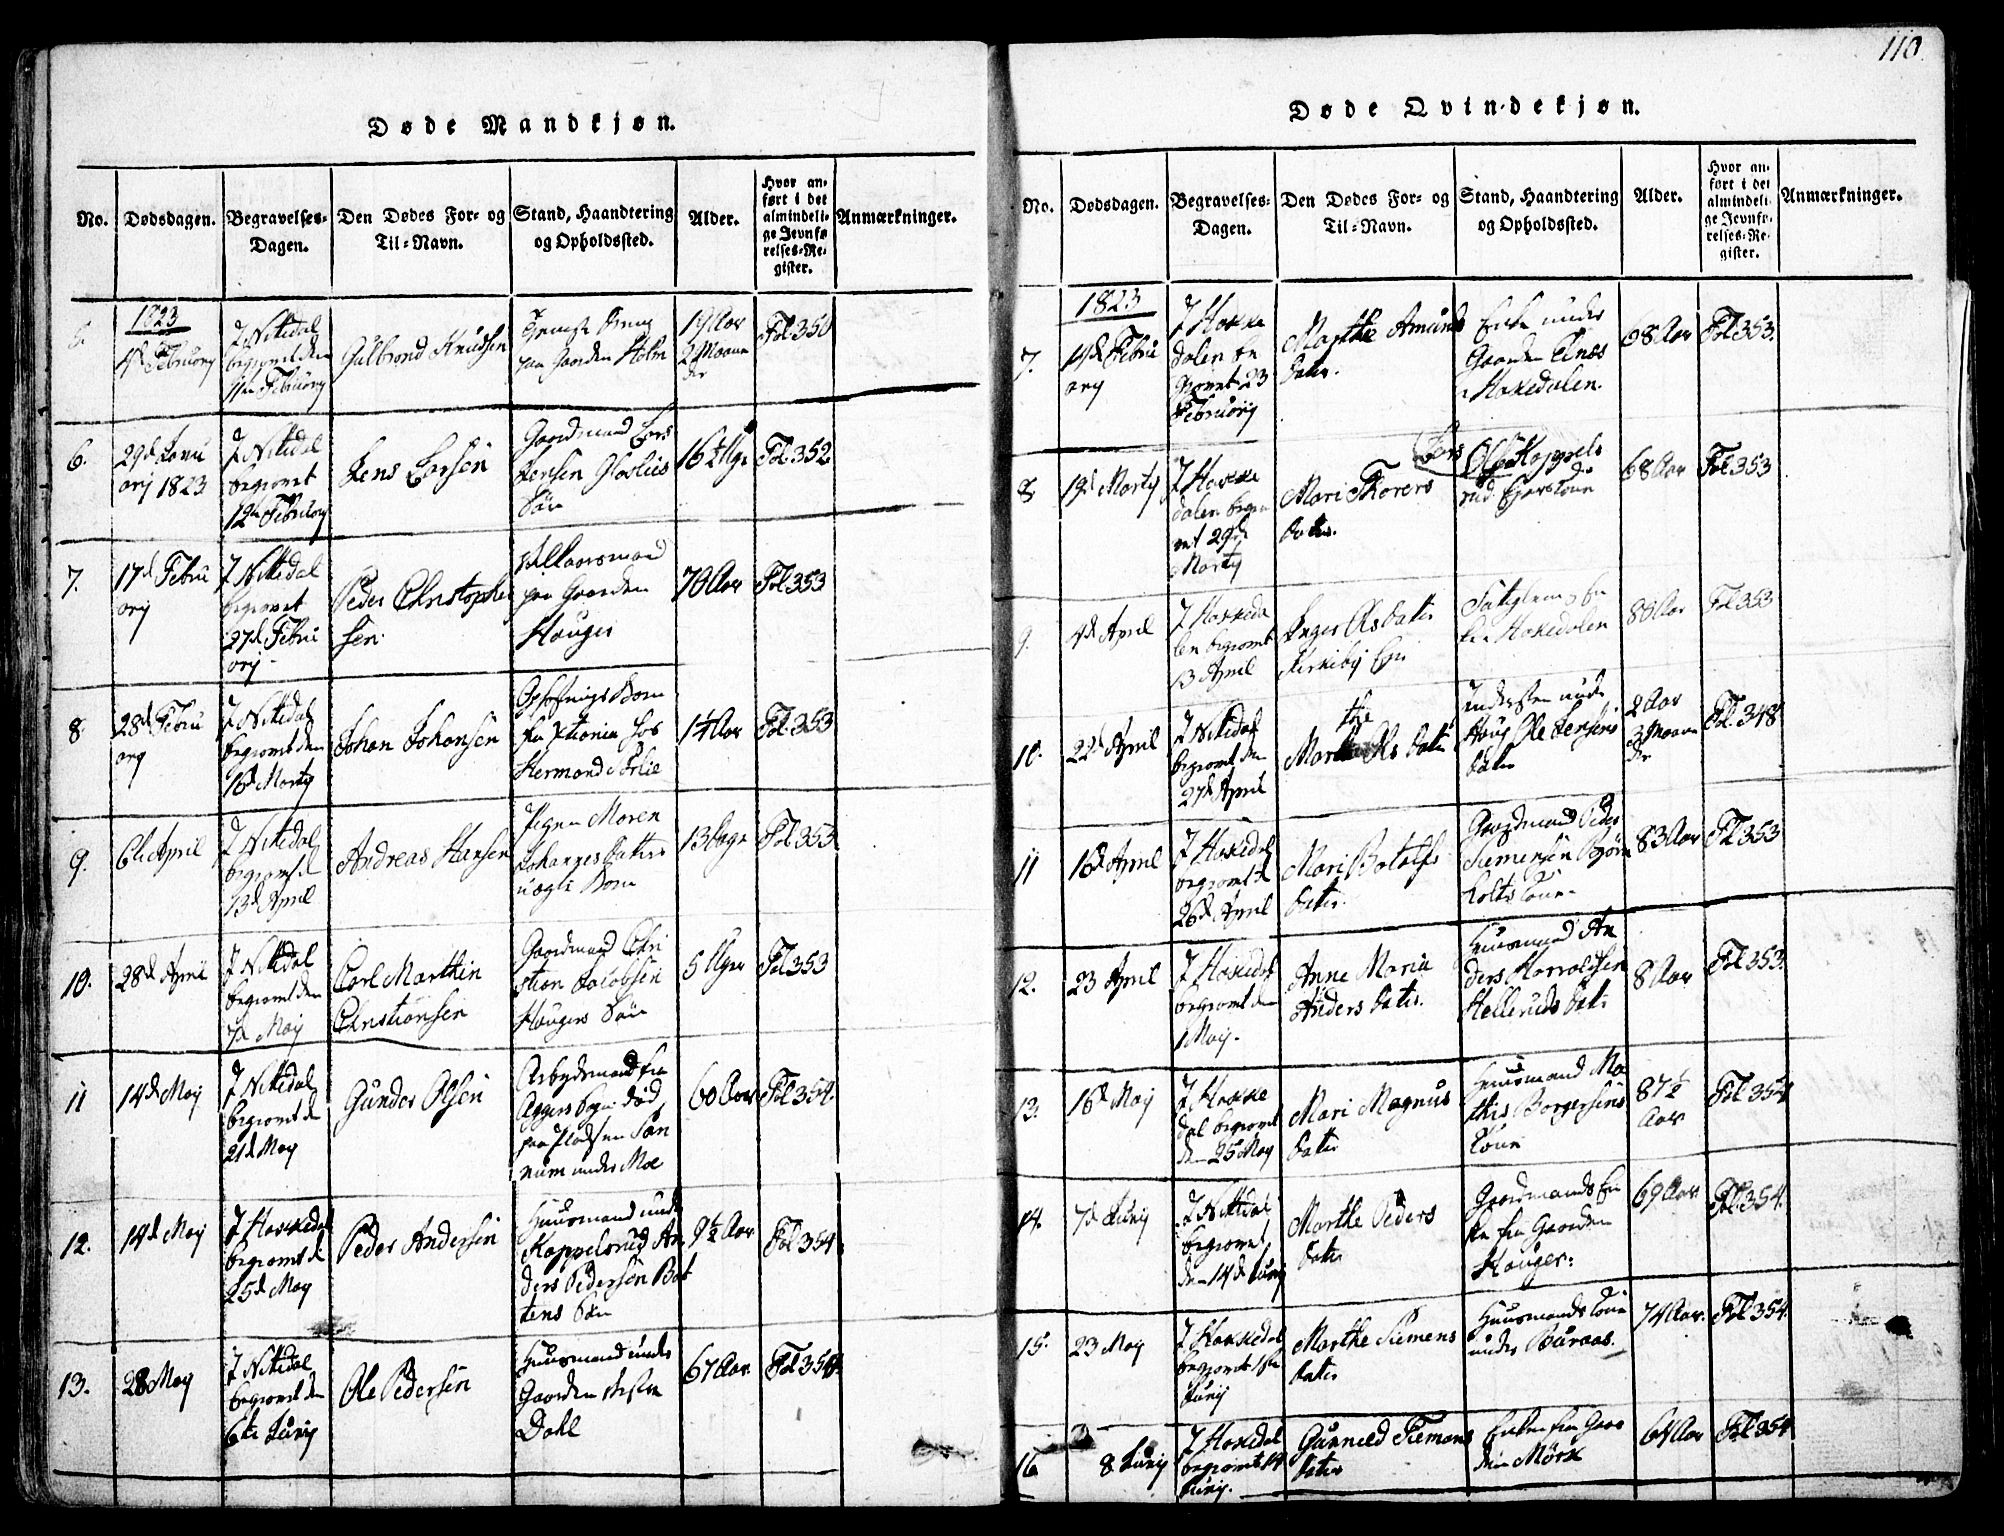 110
Døde Mandkjøn.
No.
Dødsdagen.
Begravelses-
Dagen.
Den Dødes For- og
Til-Navn.
Stand, Haandtering
og Opholdssted.
Alder.
Hvor an-
ført i det
almindeli-
ge Jevnfø-
relses-Re-
gister.
Anmærkninger.
5.
1823
4d Februarij
I Nitedal
begravet den
11te Februarij
Gulbrand Knudsen
paa Gaarden Holm
19 Aar
2 Maane
der
Fol. 350
6.
29d Janu
arij 1823
I Nitedal
begravet
12te Februarij
Jens Larsen
Gaardmand Lars
Jensen
Søn
16½ Uge
Fol. 352
7.
17d Febru
arij
I Nitedal
begravet
27d Febru
arij
Peder Christophe
sen
Vilkaarsmand
paa Gaarden
Hauger
70 Aar
Fol. 353
8
28d Febru
arij
I Nitedal
begravet den
16d Martij
Johan Johansen
Opfostrings Barn
fra Xtiania hos
1½ Aar
Fol. 353
9.
6te April
I Nitedal
begravet d
13d April
Andreas Hansen
Pigen Maren
Johannes Datters
uægte Barn
13 Dage
Fol. 353
10.
28d April
I Nitedal
begravet den
7d Maj
Carl Marthin
Christiansen
Gaardmand Chri
stian Jacobsen
Haugers Søn
5 Uger
Fol. 353
11
14d Maj
I Nitedal
begravet d
21d Maj
Gunder Olsen
Arbejdsmand fra
Aggers Sogn død
paa Pladsen San
rum under Moe
60 Aar
Fol. 354.
12.
14d Maj
I Hakkedal
begravet d
25d Maj
Peder Andersen
Huusmand under
Kappelsrud An
ders Pedersen Bak
kens Søn
9½ Aar
Fol. 354.
13.
28 Maj
I Nitedal
begravet den
6te Junij
Ole Pedersen
Huusmand under
Gaarden Vestre
Dahl
67 Aar
Fol. 354
Døde Qvindekjøn.
No.
Dødsdagen.
Begravelses-
Dagen.
Den Dødes For- og
Til-Navn.
Stand, Haandtering
og Opholdssted.
Alder.
Hvor an-
ført i det
almindeli-
ge Jevnfø-
relses-Re-
gister.
Anmærkninger.
7.
1823
14d Febru
arij
I Hakke
dalen be
gravet 23
Februarij
Marthe Amunds
Datter.
Enke under
Gaarden Elnæs
i Hakedalen.
68 Aar
Fol. 353.
8
19d Martij
I Hakke
dalen begra
vet 29d
Martij
Mari Thorers
Datter.
Lars
Kappels
rud
68 Aar
Fol. 353
9.
4d April
I Hakeda
len begravet
13 April
Inger Ols Datter
Kirkeby Eje
Fattiglem, En
ke i Hakedalen
80 Aar
Fol. 353
10.
22d April
I Nitedal
begravet den
27d April
Marthe Ols Datter
Indersten under
Haug Ole Jensens
Datter
2 Aar
3 Maane
der
Fol. 348
11
16d April
I Hakedal
begravet d
26d April
Mari Botolfs
Datter.
Gaardmand Peder
Siemensen Bjørn
holts Kone.
83 Aar
Fol. 353
12.
23 April
I Hakedal
begravet den
1 Maj.
Anne Maria
Anders Datter.
Huusmand An
ders Harroldsen
Hellerud Datter
8 Aar
Fol. 353.
13.
16d Maj
I Hakke
dal begravet
den 25 Maj
Mari Magnus
Datter
Huusmand Ma
this Borgersens
Kone
87½
Aar
Fol. 354
14.
7d Junij
I Nitedal
begravet
den 14d Junij
Marthe Peders
Datter
Gaardmands En
ke fra Gaarden
Hauger.
69 Aar
Fol. 354.
15.
23 Maj
I Hakkedal
begravet 1ste
Junij
Marthe Siemens
Datter
Huusmands Kone
under Buraas.
74 Aar.
Fol. 354.
16
8 Junij
I Hakedal
begravet 14
Junij.
Gunneld Siemens
Datter
Enke fra Gaar
den Mørk
64 Aar
Fol. 354